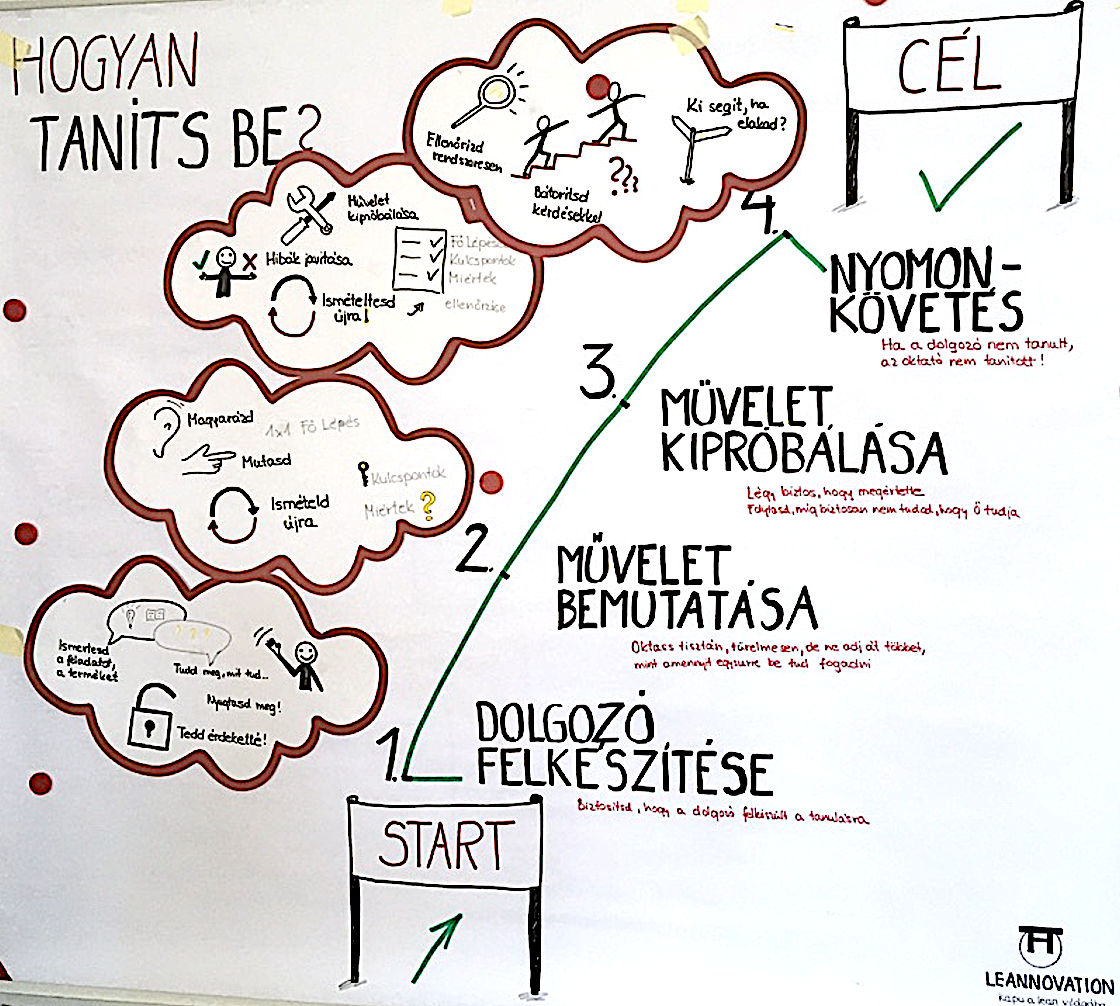 HOGYAN
TANÍTS BE?
CÉL
Ellenőrizd
rendszeresen
Bátorítsd
kérdésekkel
???
Ki segít, ha
elakad?
4.
NYOMON-
KÖVETÉS
Ha a dolgozó nem tanult,
az oktató nem tanított!
Művelet
kipróbálása
Hibák javítása
Ismételtesd
újra!
Fő Lépések
Kulcspontok
Miértek
ellenőrzése
3.
MŰVELET
KIPRÓBÁLÁSA
Légy biztos, hogy megértette
Folytasd, míg biztosan nem tudod, hogy Ő tudja
Magyarázd
1x1 Fő Lépés
Mutasd
Kulcspontok
Ismételd
újra
Miértek ?
2.
MŰVELET
BEMUTATÁSA
Oktass tisztán, türelmesen, de ne adj át többet,
mint amennyit egyszerre be tud fogadni
Ismertesd
a feladatot,
a terméket
???
Tudd meg, mit tud...
Nyugtasd meg!
Tedd érdekeltté!
1.
DOLGOZÓ
FELKÉSZÍTÉSE
Biztosítsd, hogy a dolgozó felkészült a tanulásra
START
LEANNOVATION
Kapu a lean világába